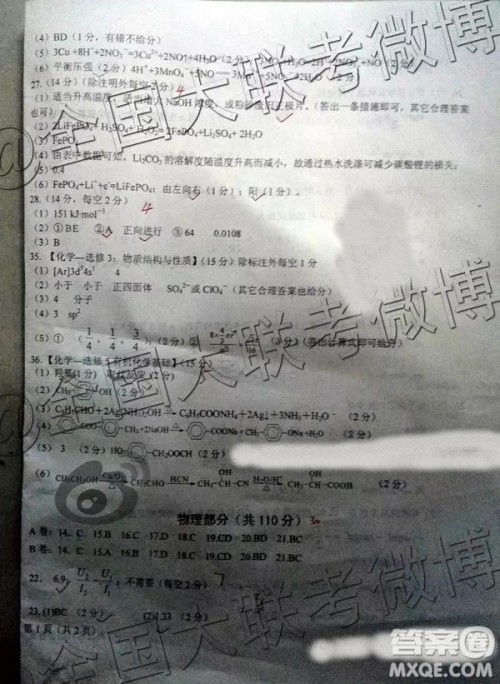 (4) BD(1分,有错不给分)
(5) 3Cu +8H⁺+2NO₃⁻=3Cu²⁺+2NO↑+4H₂O (2分)
(6) 平衡压强(2分) 4H⁺+3MnO₄⁻+5NO
27. (14分)(除注明外每空2分)
(1) 适当升高温度;适当增大NaOH浓度,或粉碎废旧正极片。(答出一条措施即可,其它合理答案
也可)
(2) 2LiFePO₄+H₂SO₄+H₂O₂=2FePO₄+Li₂SO₄+2H₂O
(3) FePO₄
(4) 由表中数据可知,Li₂CO₃的溶解度随温度升高而减小,故通过热水洗涤可减少碳酸锂的损失;
(5) 0.4
(6) FePO₄+Li⁺+e⁻=LiFePO₄;由左向右(1分);阳(1分)。
28. (14分,每空2分) 4
(1) 151 kJ·mol⁻¹
(2) ①BE ②A 正向进行 ③64 0.0108
(3) B
35. 【化学—选修3:物质结构与性质】(15分)除标注外每空1分
(1) [Ar]3d⁵4s¹ 4
(2) 小于 小于 正四面体 SO₄²⁻或ClO₄⁻(其它合理答案也给分)
(3) 4 分子
(4) 3 sp²
(5) ① (1/4, 1/4, 3/4)(2分) ② (2分)(答出计算式即可给分)
36. 【化学—选修5有机化学基础】(15分)
(1) 羟基(1分) 取代反应
(2) CH₃ OH (2分)
(3) C₆H₅CHO+2Ag(NH₃)₂OH→C₆H₅COONH₄+2Ag↓+3NH₃+H₂O (2分)
(4) COO CH₃+2NaOH → COONa+CH₃ ONa+H₂O (2分)
(5) 3 (2分) HO CH₂OOCH (2分)
(6) CH₃CH₂OH CH₃CHO HCN CH₃-CH-CN H₂O/H⁺ CH₃-CH-COOH
OH OH
物理部分(共110分)
A卷:14. C 15.B 16.C 17.D 18.C 19.CD 20.BD 21.BC
B卷:14. C 15.A 16.B 17.D 18.C 19.CD 20.BD 21.BC
22. 6.9; U₂/I₂ - U₁/I₁,不需要(每空2分) 7
23. (1)BC (2分) (2)1.33 (2分)
第1页(共2页)
@全国大联考微博
@全国大联考微博
@全国大联考微博
答案圈
MXQE.COM